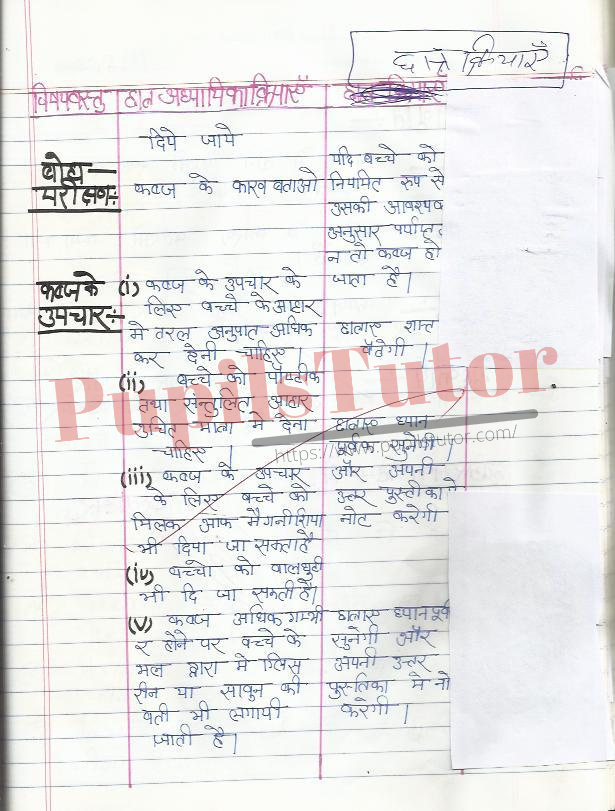 छात्र क्रियाएँ
विषयवस्तु छात्र अध्यापिका क्रियाएँ
दिये जाये
बोध
परीक्षण:-
कब्ज के कारण बताओ
यदि बच्चे को
नियमित रुप से
उसकी आवश्यक
अनुसार पर्याप्त
न तो कब्ज हो
जाता है।
कब्ज के
उपचार:-
(i) कब्ज के उपचार के
लिए बच्चे के आहार
मे तरल अनुपात अधिक
कर देनी चाहिए।
(ii) बच्चे को पौष्टीक
तथा सन्तुलित आहार
उचित मात्रा मे देना
चाहिए।
(iii) कब्ज के उपचार
के लिए बच्चे को
मिलक ऑफ मैगनीशिया
भी दिया जा सकता है
(iv) बच्चो को बालघुटी
भी दि जा सकती है।
(v) कब्ज अधिक गम्भी
र होने पर बच्चे के
मल द्वारा मे ग्लिस
रीन या साबुन की
बती भी लगायी
जाती है।
छात्राए शान्त
बैठेगी।
छात्राए ध्यान
पूर्वक सुनेगी
और अपनी
उत्तर पुस्तीका मे
नोट करेगी
छात्राए ध्यान पूर्व
सुनेगी और
अपनी उत्तर
पुस्तिका मे नो
करेगी।
PupilsTutor